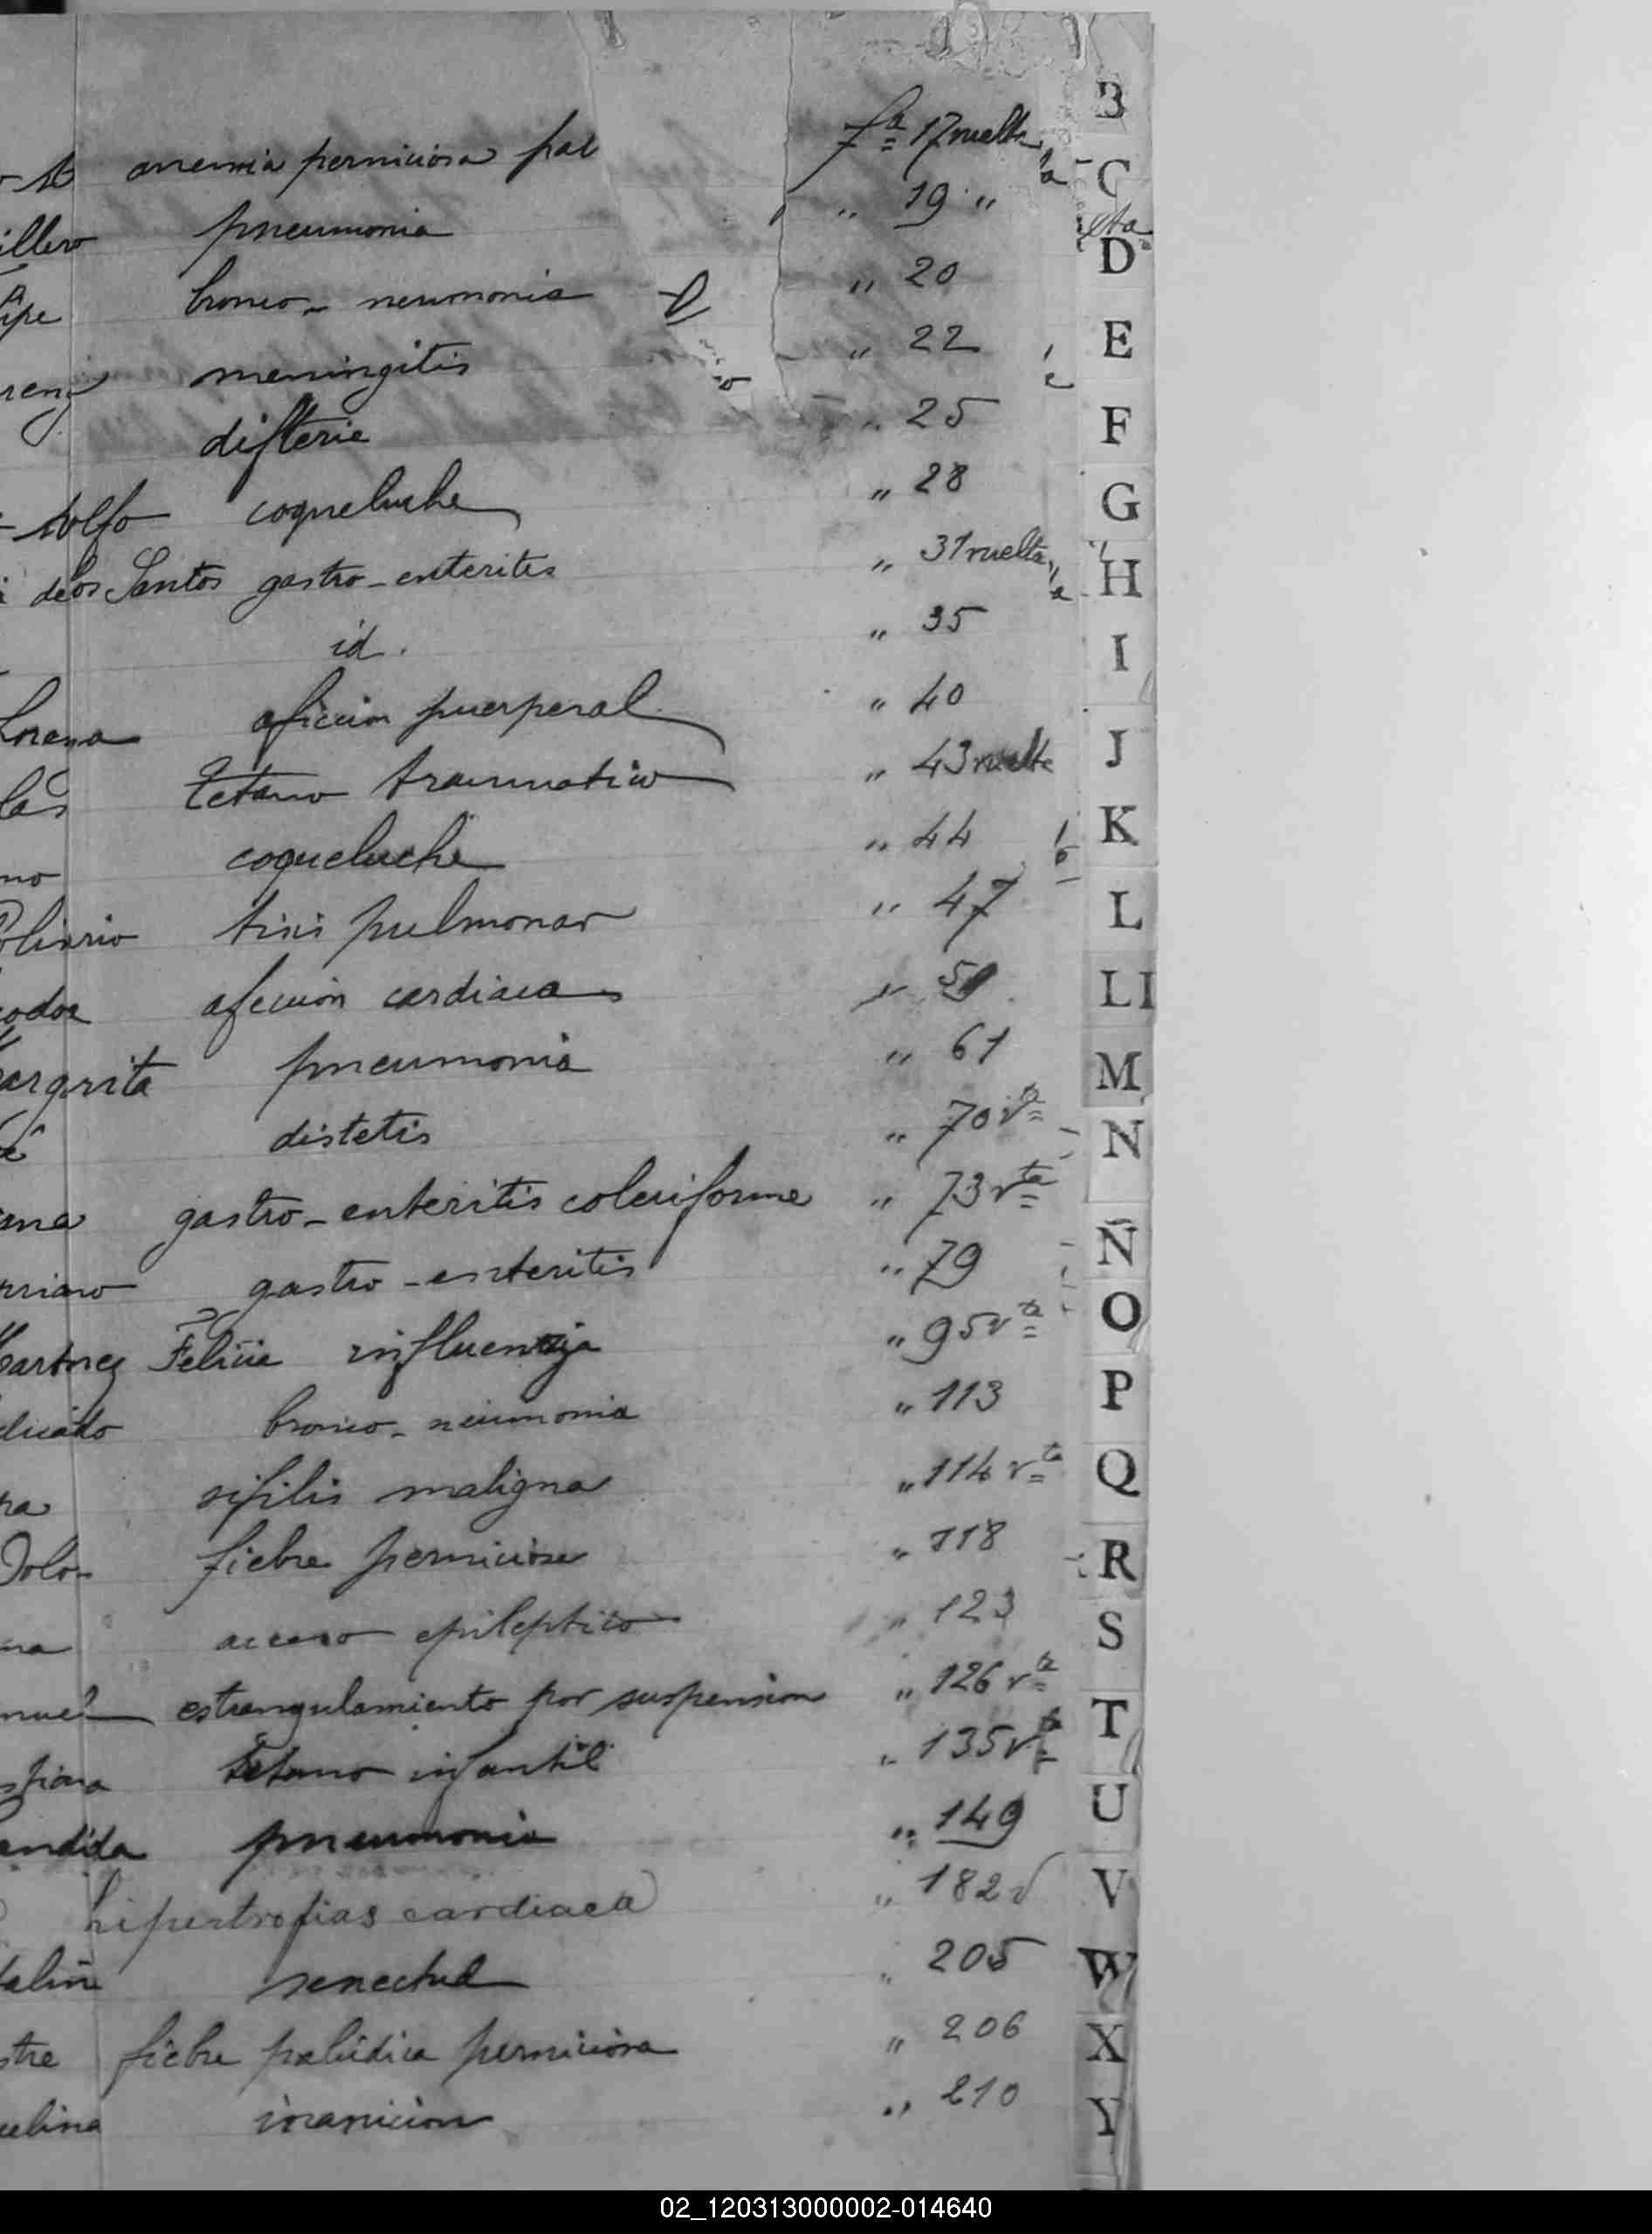 anemia perniciosa pal fª 17 vuelta
illero pneumonia " 19 "
ipe bronco-neumonia " 20
renz meningitis " 22
difterie " 25
dolfo coqueluche " 28
i de los Santos gastro-enteritis " 31 vuelta
id. " 35
Lorenza afeccion puerperal " 40
las tetano traumatico " 43 vuelta
no coqueluche " 44
tisis pulmonar " 47
codor afeccion cardiaca "
argarita pneumonia " 61
distetis " 70 vª
ana gastro-enteritis coleriforme " 73 vta
priano gastro-enteritis " 79
Martinez Felicia influenzja " 95 vta
bronco-neumonia " 113
ra sifilis maligna " 114 vta
Dolo- fiebre perniciosa " 118
na acceso epileptico " 123
nuel estrangulamiento por suspension " 126 vta
tetano infantil " 135 vta
andida pneumonia " 149
hipertrofias cardiaca " 182 v
senectud " 205
stre fiebre paludica perniciosa " 206
celina inanicion " 210
B
C
D
E
F
G
H
I
J
K
L
LI
M
N
Ñ
O
P
Q
R
S
T
U
V
W
X
Y
02_120313000002-014640